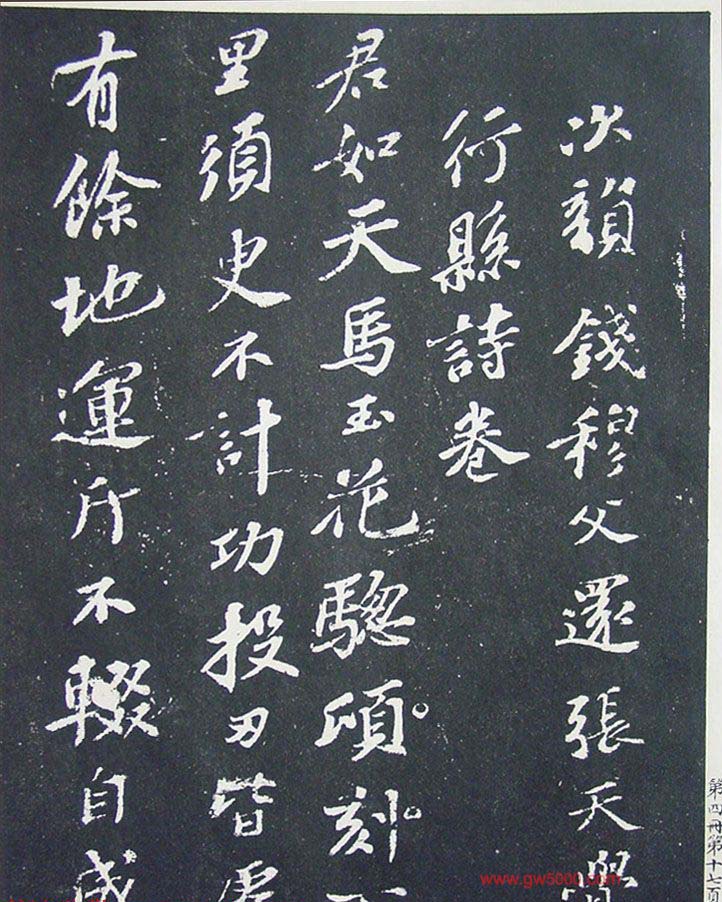 次韻錢穆父還張天覺
行縣詩卷
君如天馬玉花驄頃刻
里須臾不計功投刃皆虛
有餘地運斤不輟自成
第四冊第十七頁
www.gw5000.com